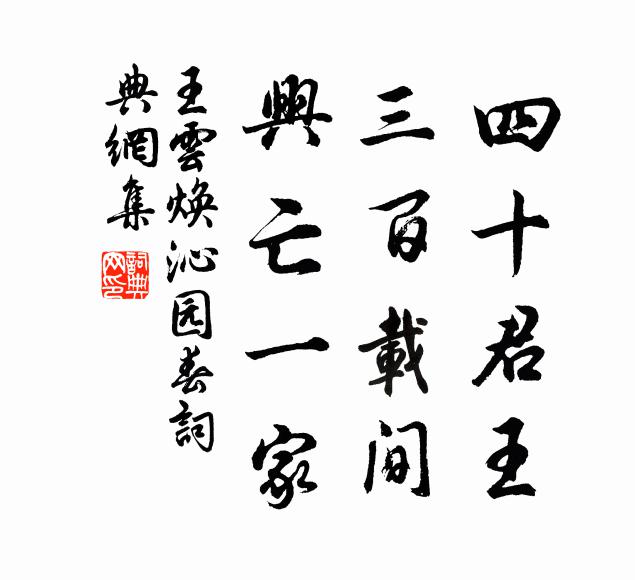 四十君王
三百載间
興亡一家
王雲煥沁园春詞
典網集
詞典网印